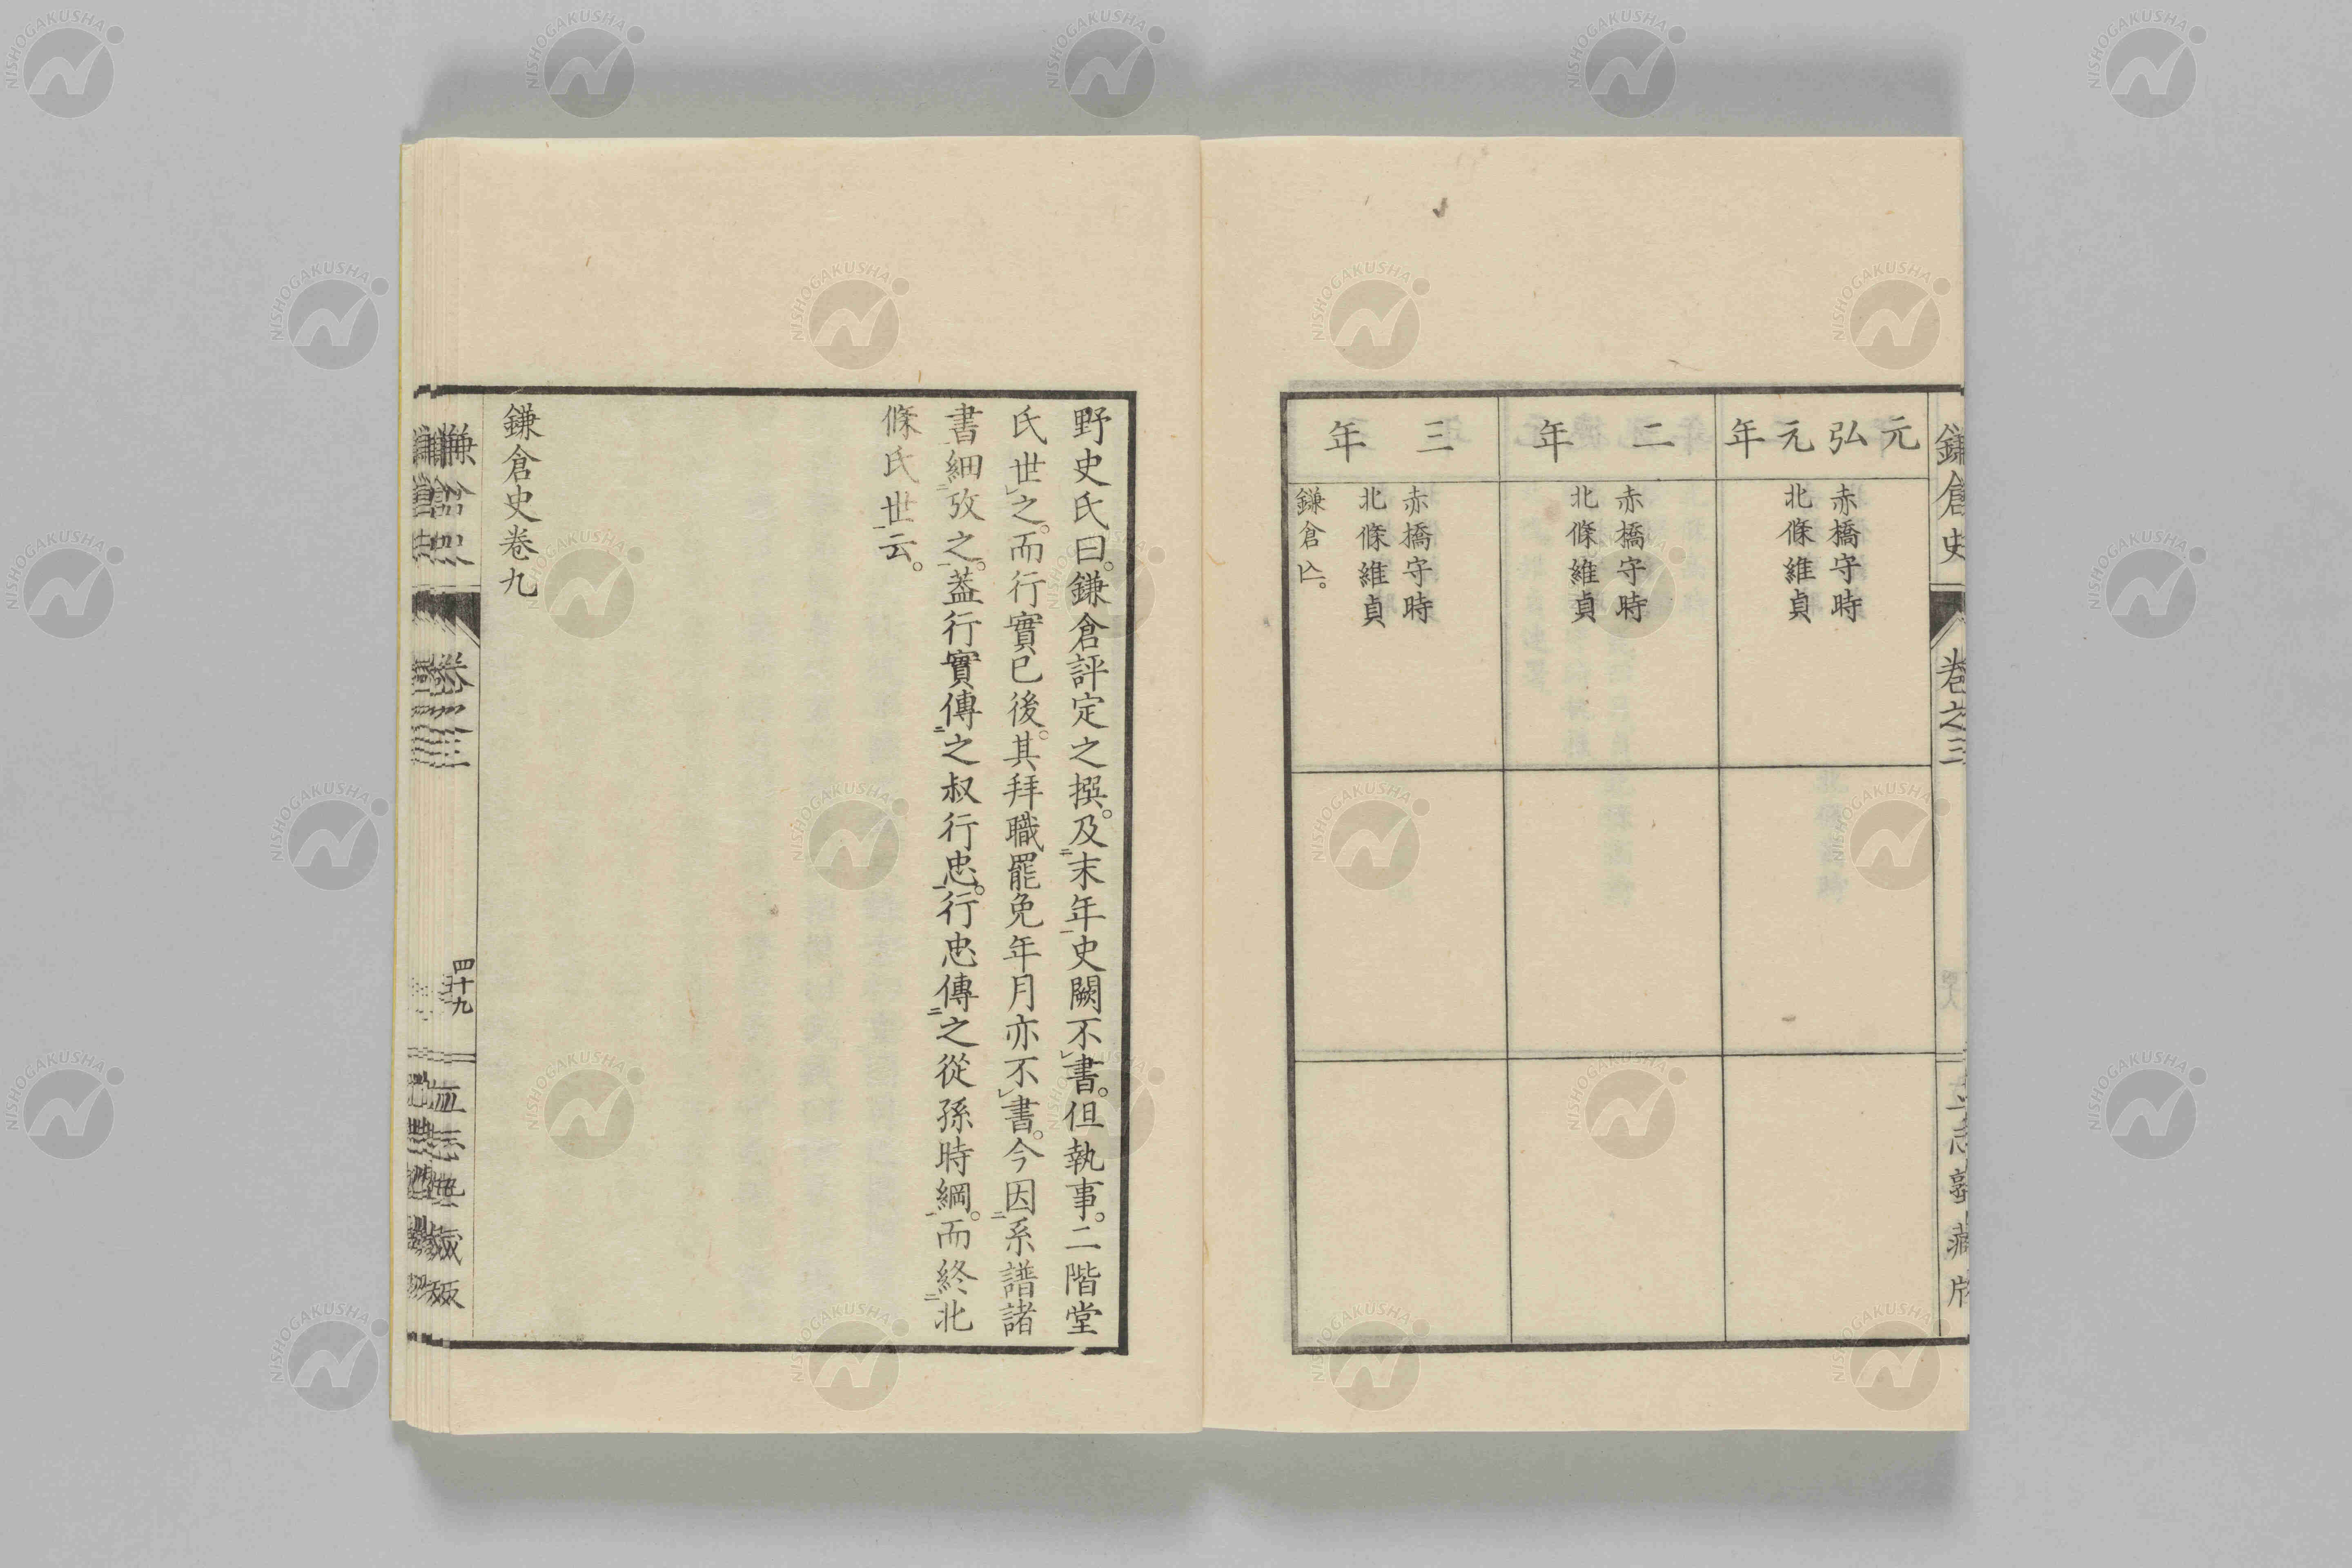 鎌倉史
卷之三
元弘元年
赤橋守時
北條維貞
二年
赤橋守時
北條維貞
三年
赤橋守時
北條維貞
鎌倉亾。
野史氏曰。鎌倉評定之撰。及末年史闕不書。但執事。二階堂
氏世之。而行實已後。其拜職罷免年月亦不書。今因系譜諸
書細攷之。蓋行實傳之叔行忠。行忠傳之從孫時綱。而終北
條氏世云。
鎌倉史卷九
四十九
NISHOGAKUSHA